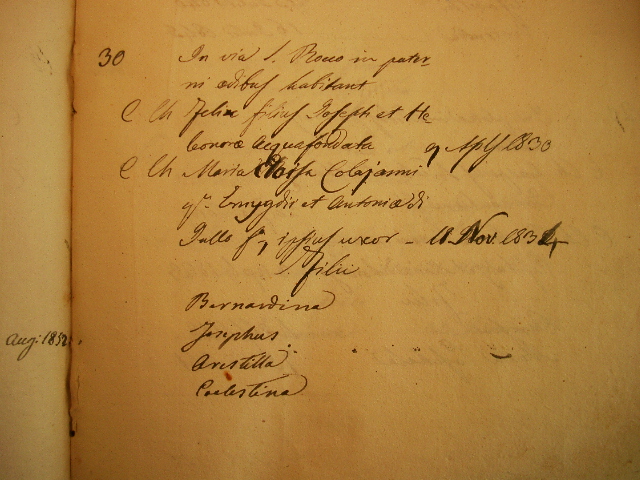 30 In via S. Rocco in pater-
ni ædibus habitant
C Ch Felix filius Joseph et He
leonoræ Acquafondata 9 Apl 1830
C Ch Maria Eloisa Colajanni
q.m Emygdii et Antoniæ di
Tullo f., ipsius uxor - 11 Nov. 1834
Filii
Bernardina
Josephus
Arestilla
Coelestina
Aug: 1852